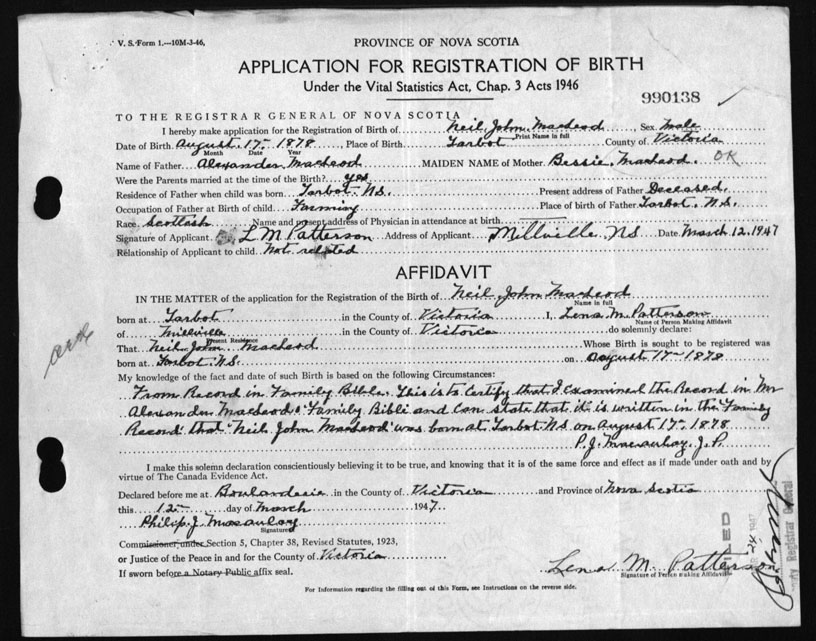 V. S. Form 1.—10M-3-46.
PROVINCE OF NOVA SCOTIA
APPLICATION FOR REGISTRATION OF BIRTH
Under the Vital Statistics Act, Chap. 3 Acts 1946
990138
TO THE REGISTRAR GENERAL OF NOVA SCOTIA
I hereby make application for the Registration of Birth of Neil John MacLeod Sex Male
Print Name in full
Date of Birth August 17 - 1878 Place of Birth Tarbot County of Victoria
Month Date Year
Name of Father Alexander MacLeod MAIDEN NAME of Mother Bessie MacLeod. OK
Were the Parents married at the time of the Birth? Yes
Residence of Father when child was born Tarbot N.S. Present address of Father Deceased.
Occupation of Father at Birth of child Farming Place of birth of Father Tarbot, N.S.
Race Scottish Name and present address of Physician in attendance at birth
Signature of Applicant L M Patterson Address of Applicant Millville N.S Date March 12, 1947
Relationship of Applicant to child Not related
AFFIDAVIT
IN THE MATTER of the application for the Registration of Birth of Neil John MacLeod
Name in full
born at Tarbot in the County of Victoria I, Lena M. Patterson
Name of Person Making Affidavit
of Millville in the County of Victoria do solemnly declare:
Present Residence
That Neil John MacLeod Whose Birth is sought to be registered was
born at Tarbot N.S. on August 17 - 1878
My knowledge of the fact and date of such Birth is based on the following Circumstances:
From Record in Family Bible. This is to Certify that I Examined the Record in Mr
Alexander MacLeod's Family Bible and Can state that it is written in the "Family
Record" that "Neil John MacLeod" was born at Tarbot N.S on August 17 - 1878
P. J. Macaulay, J. P.
I make this solemn declaration conscientiously believing it to be true, and knowing that it is of the same force and effect as if made under oath and by
virtue of The Canada Evidence Act.
Declared before me at Boulardarie in the County of Victoria and Province of Nova Scotia
this 12 - day of March 1947
Philip J Macaulay
Signature
Commissioner under Section 5, Chapter 38, Revised Statutes, 1923,
or Justice of the Peace in and for the County of Victoria
If sworn before a Notary Public affix seal.
Lena M. Patterson
Signature of Person making Affidavit
For Information regarding the filling out of this Form, see Instructions on the reverse side.